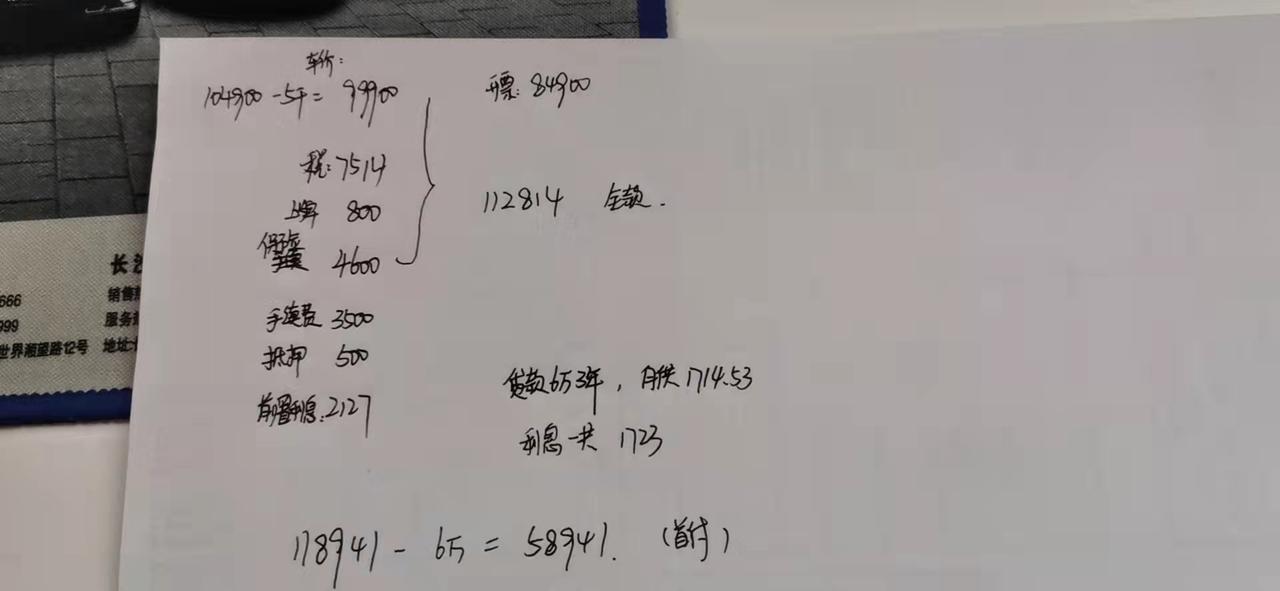 车价：
104900-5千= 99900
开票: 84900
税: 7514
上牌 800
保险 4600
112814 全款.
手续费 3500
抵押 500
前置利息: 2127
贷款6万3年，月供1714.53
利息一共 1723
118941 - 6万 = 58941. (首付)
长沙
666
销售
999
服务
世界湘望路12号 地址: